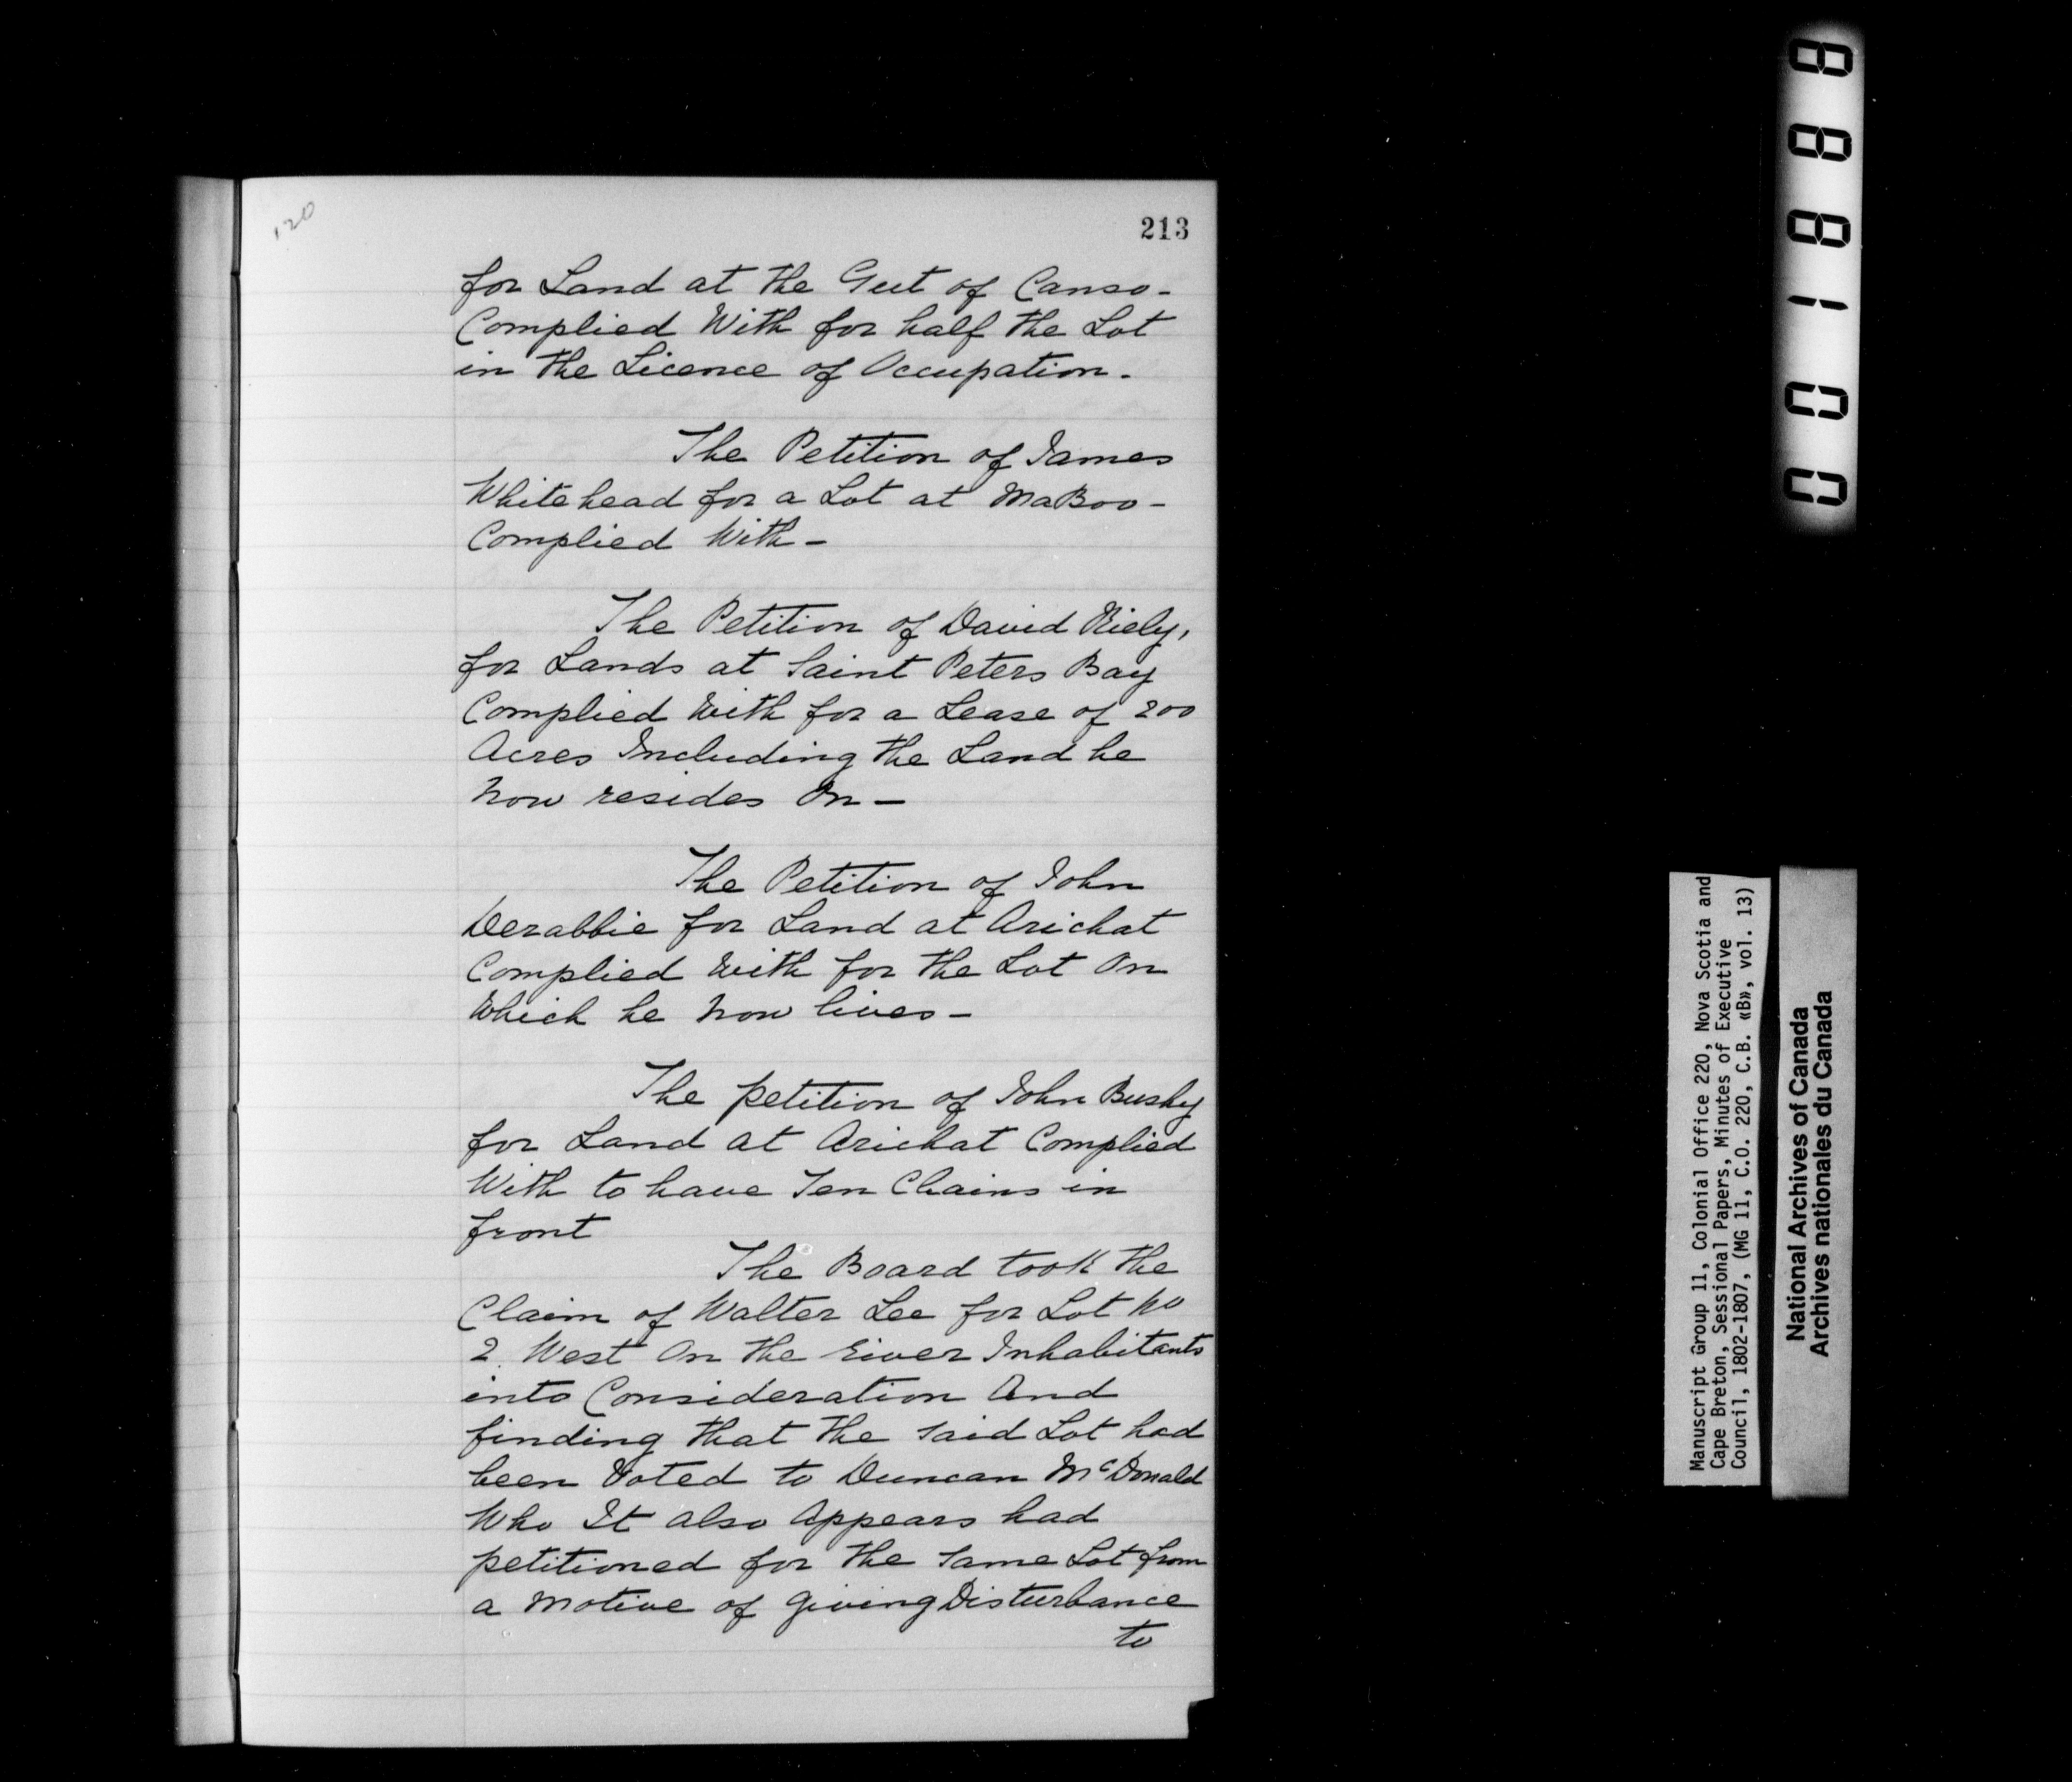 120
213
for Land at the Gut of Canso -
Complied With for half the Lot
in the Licence of Occupation.
The Petition of James
Whitehead for a Lot at MaBoo -
Complied With -
The Petition of David Kiely,
for Lands at Saint Peters Bay
Complied With for a Lease of 200
Acres Including the Land he
Now resides On -
The Petition of John
Derabbie for Land at Arichat
Complied With for the Lot On
Which he Now lives -
The petition of John Bushy
for Land at Arichat Complied
With to have Ten Chains in
front
The Board took the
Claim of Walter Lee for Lot No
2. West On the River Inhabitants
into Consideration And
finding that the said Lot had
been Voted to Duncan McDonald
Who It also Appears had
petitioned for the Same Lot from
a Motive of giving Disturbance
to
001888
Manuscript Group 11, Colonial Office 220, Nova Scotia and
Cape Breton, Sessional Papers, Minutes of Executive
Council, 1802-1807, (MG 11, C.O. 220, C.B. «B», vol. 13)
National Archives of Canada
Archives nationales du Canada